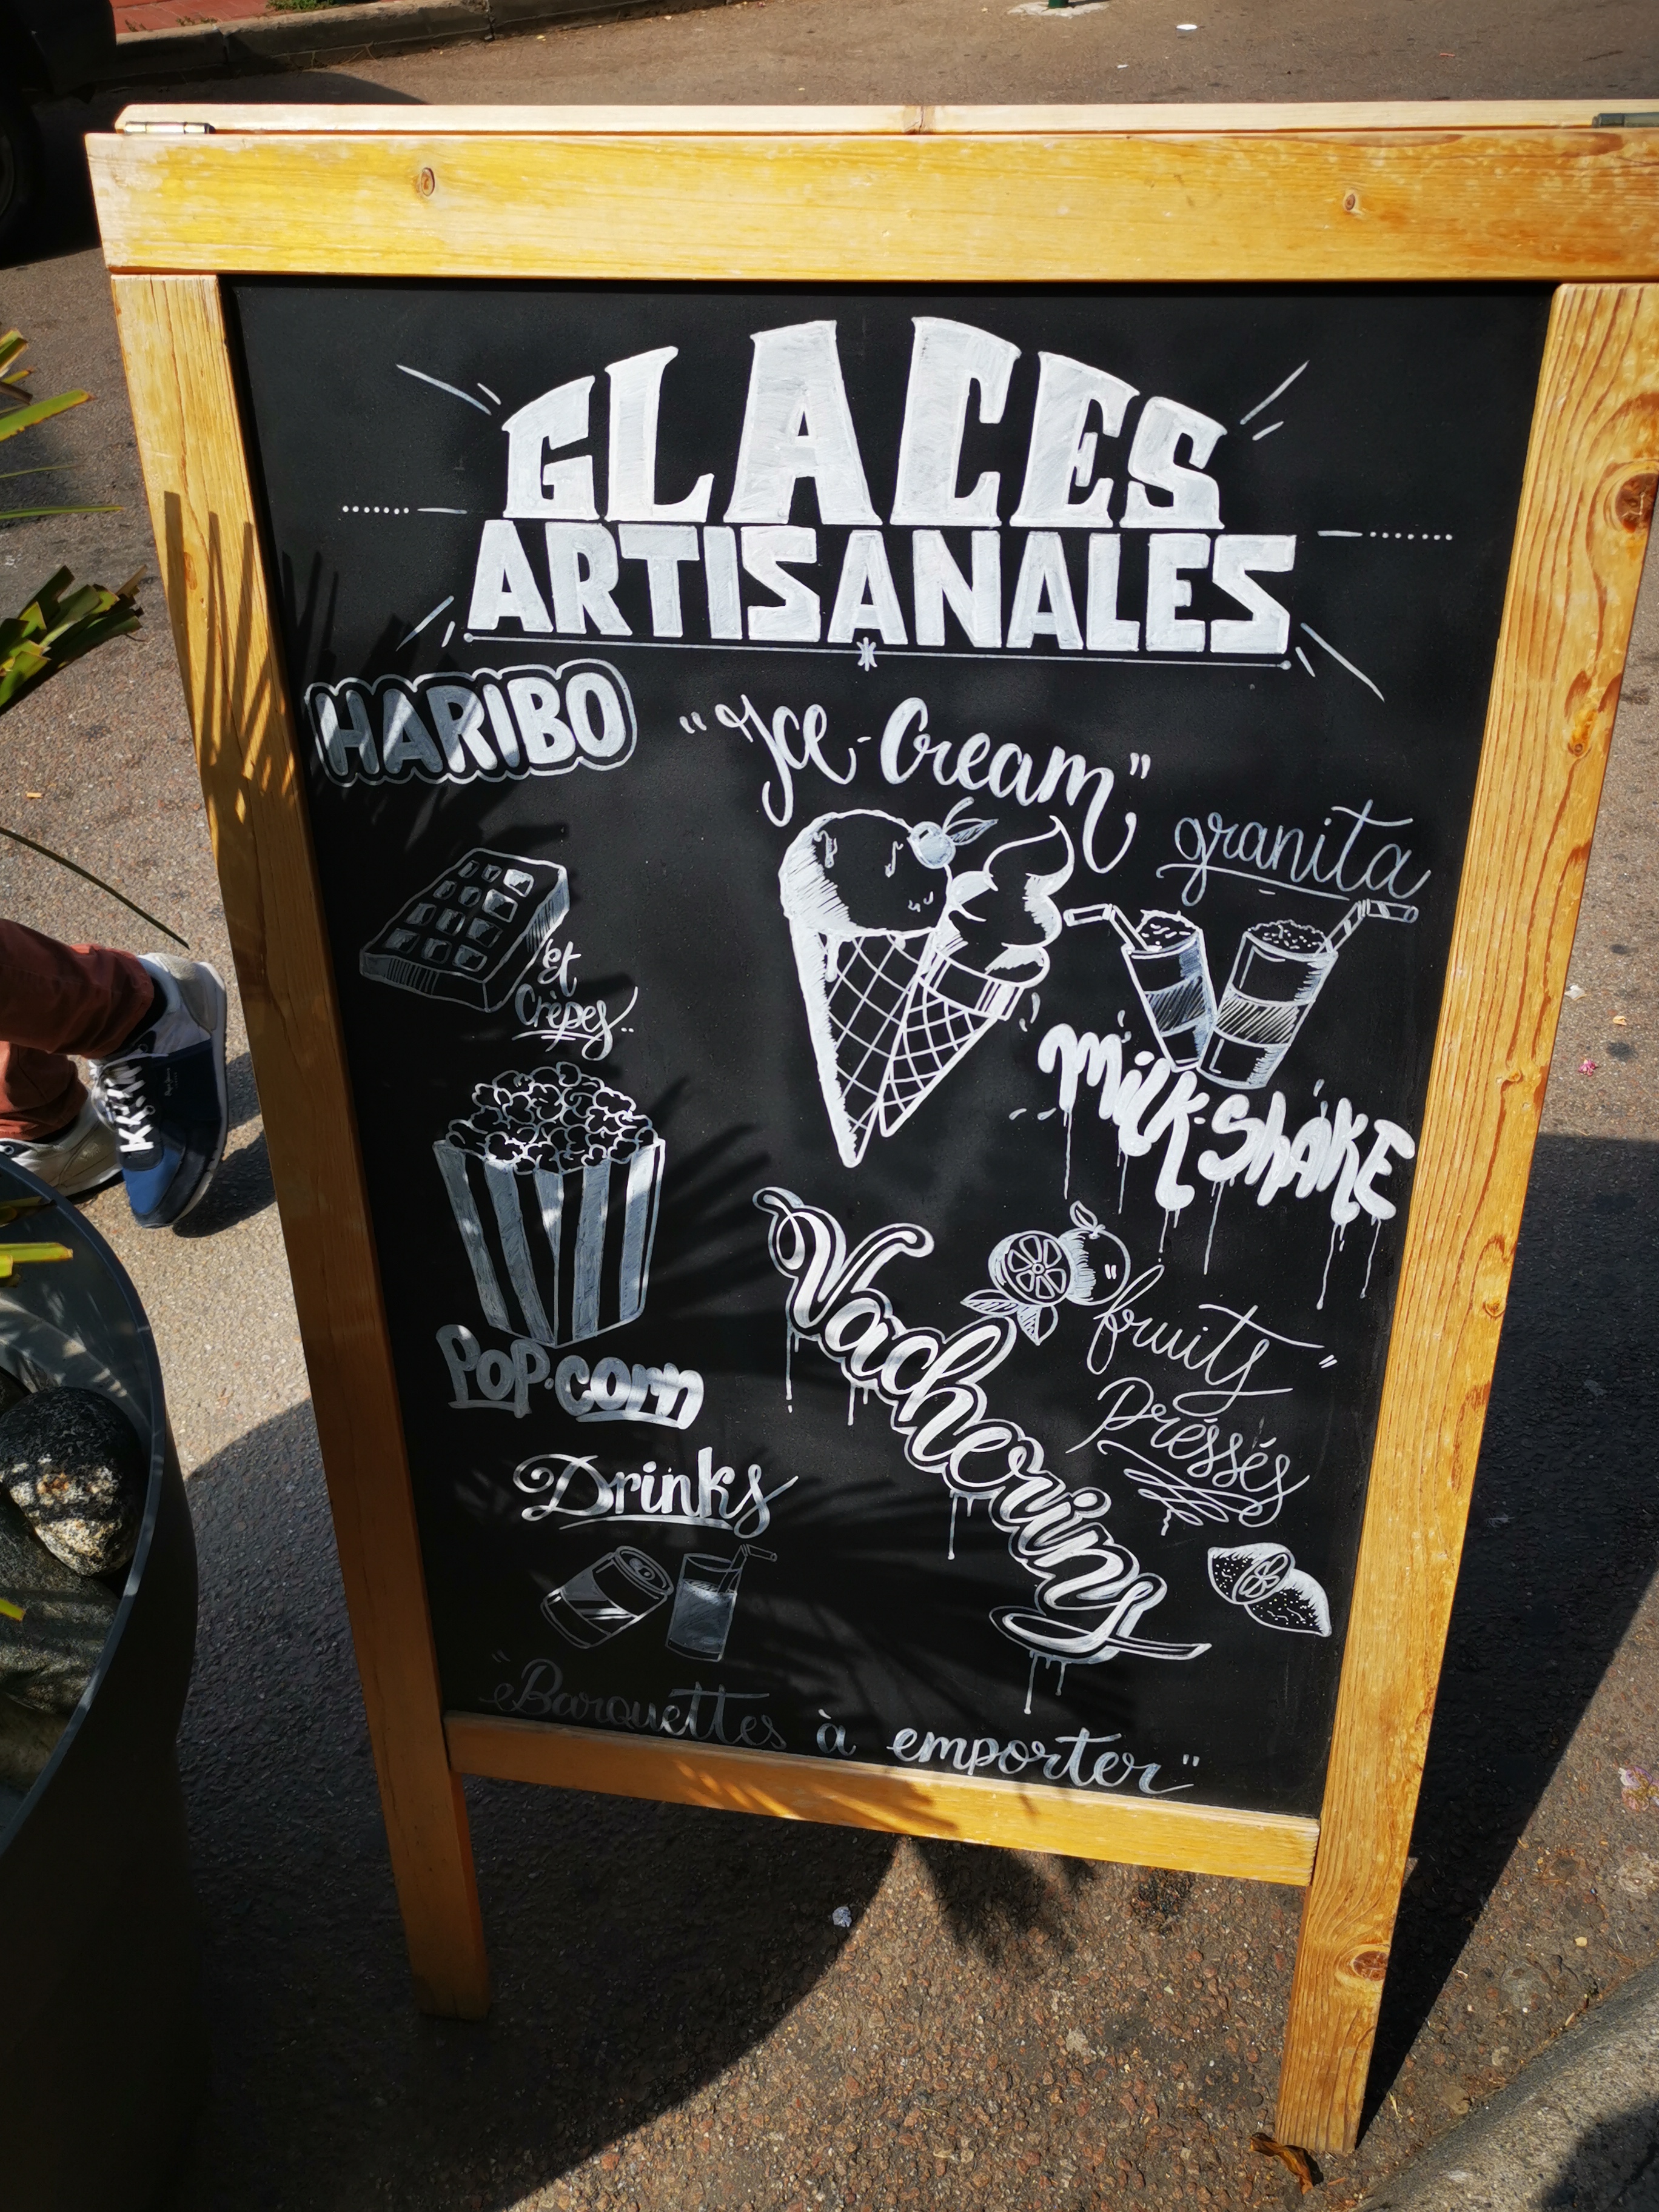 GLACES
ARTISANALES
HARIBO
"Ice-Cream"
granita
et
Crêpes..
Milk-Shake
Pop-corn
Vacherins
"fruits"
Préssés
Drinks
"Barquettes à emporter"